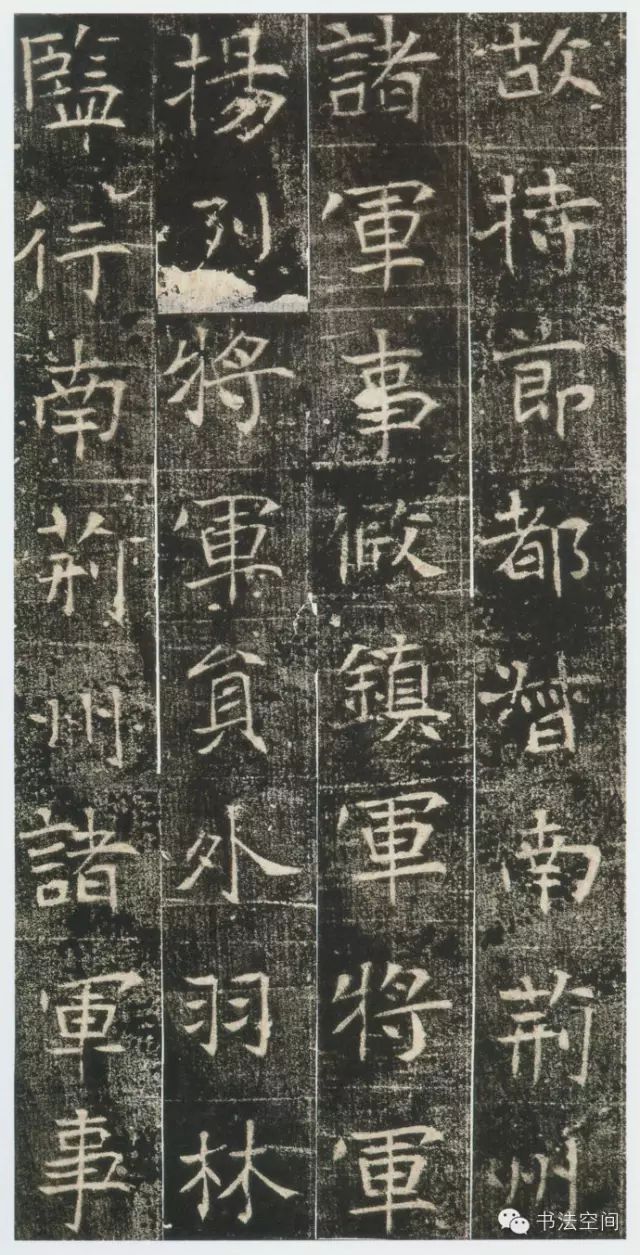 故持節都督南荊州
諸軍事假鎮軍將軍
揚列將軍員外羽林
監行南荊州諸軍事
书法空间